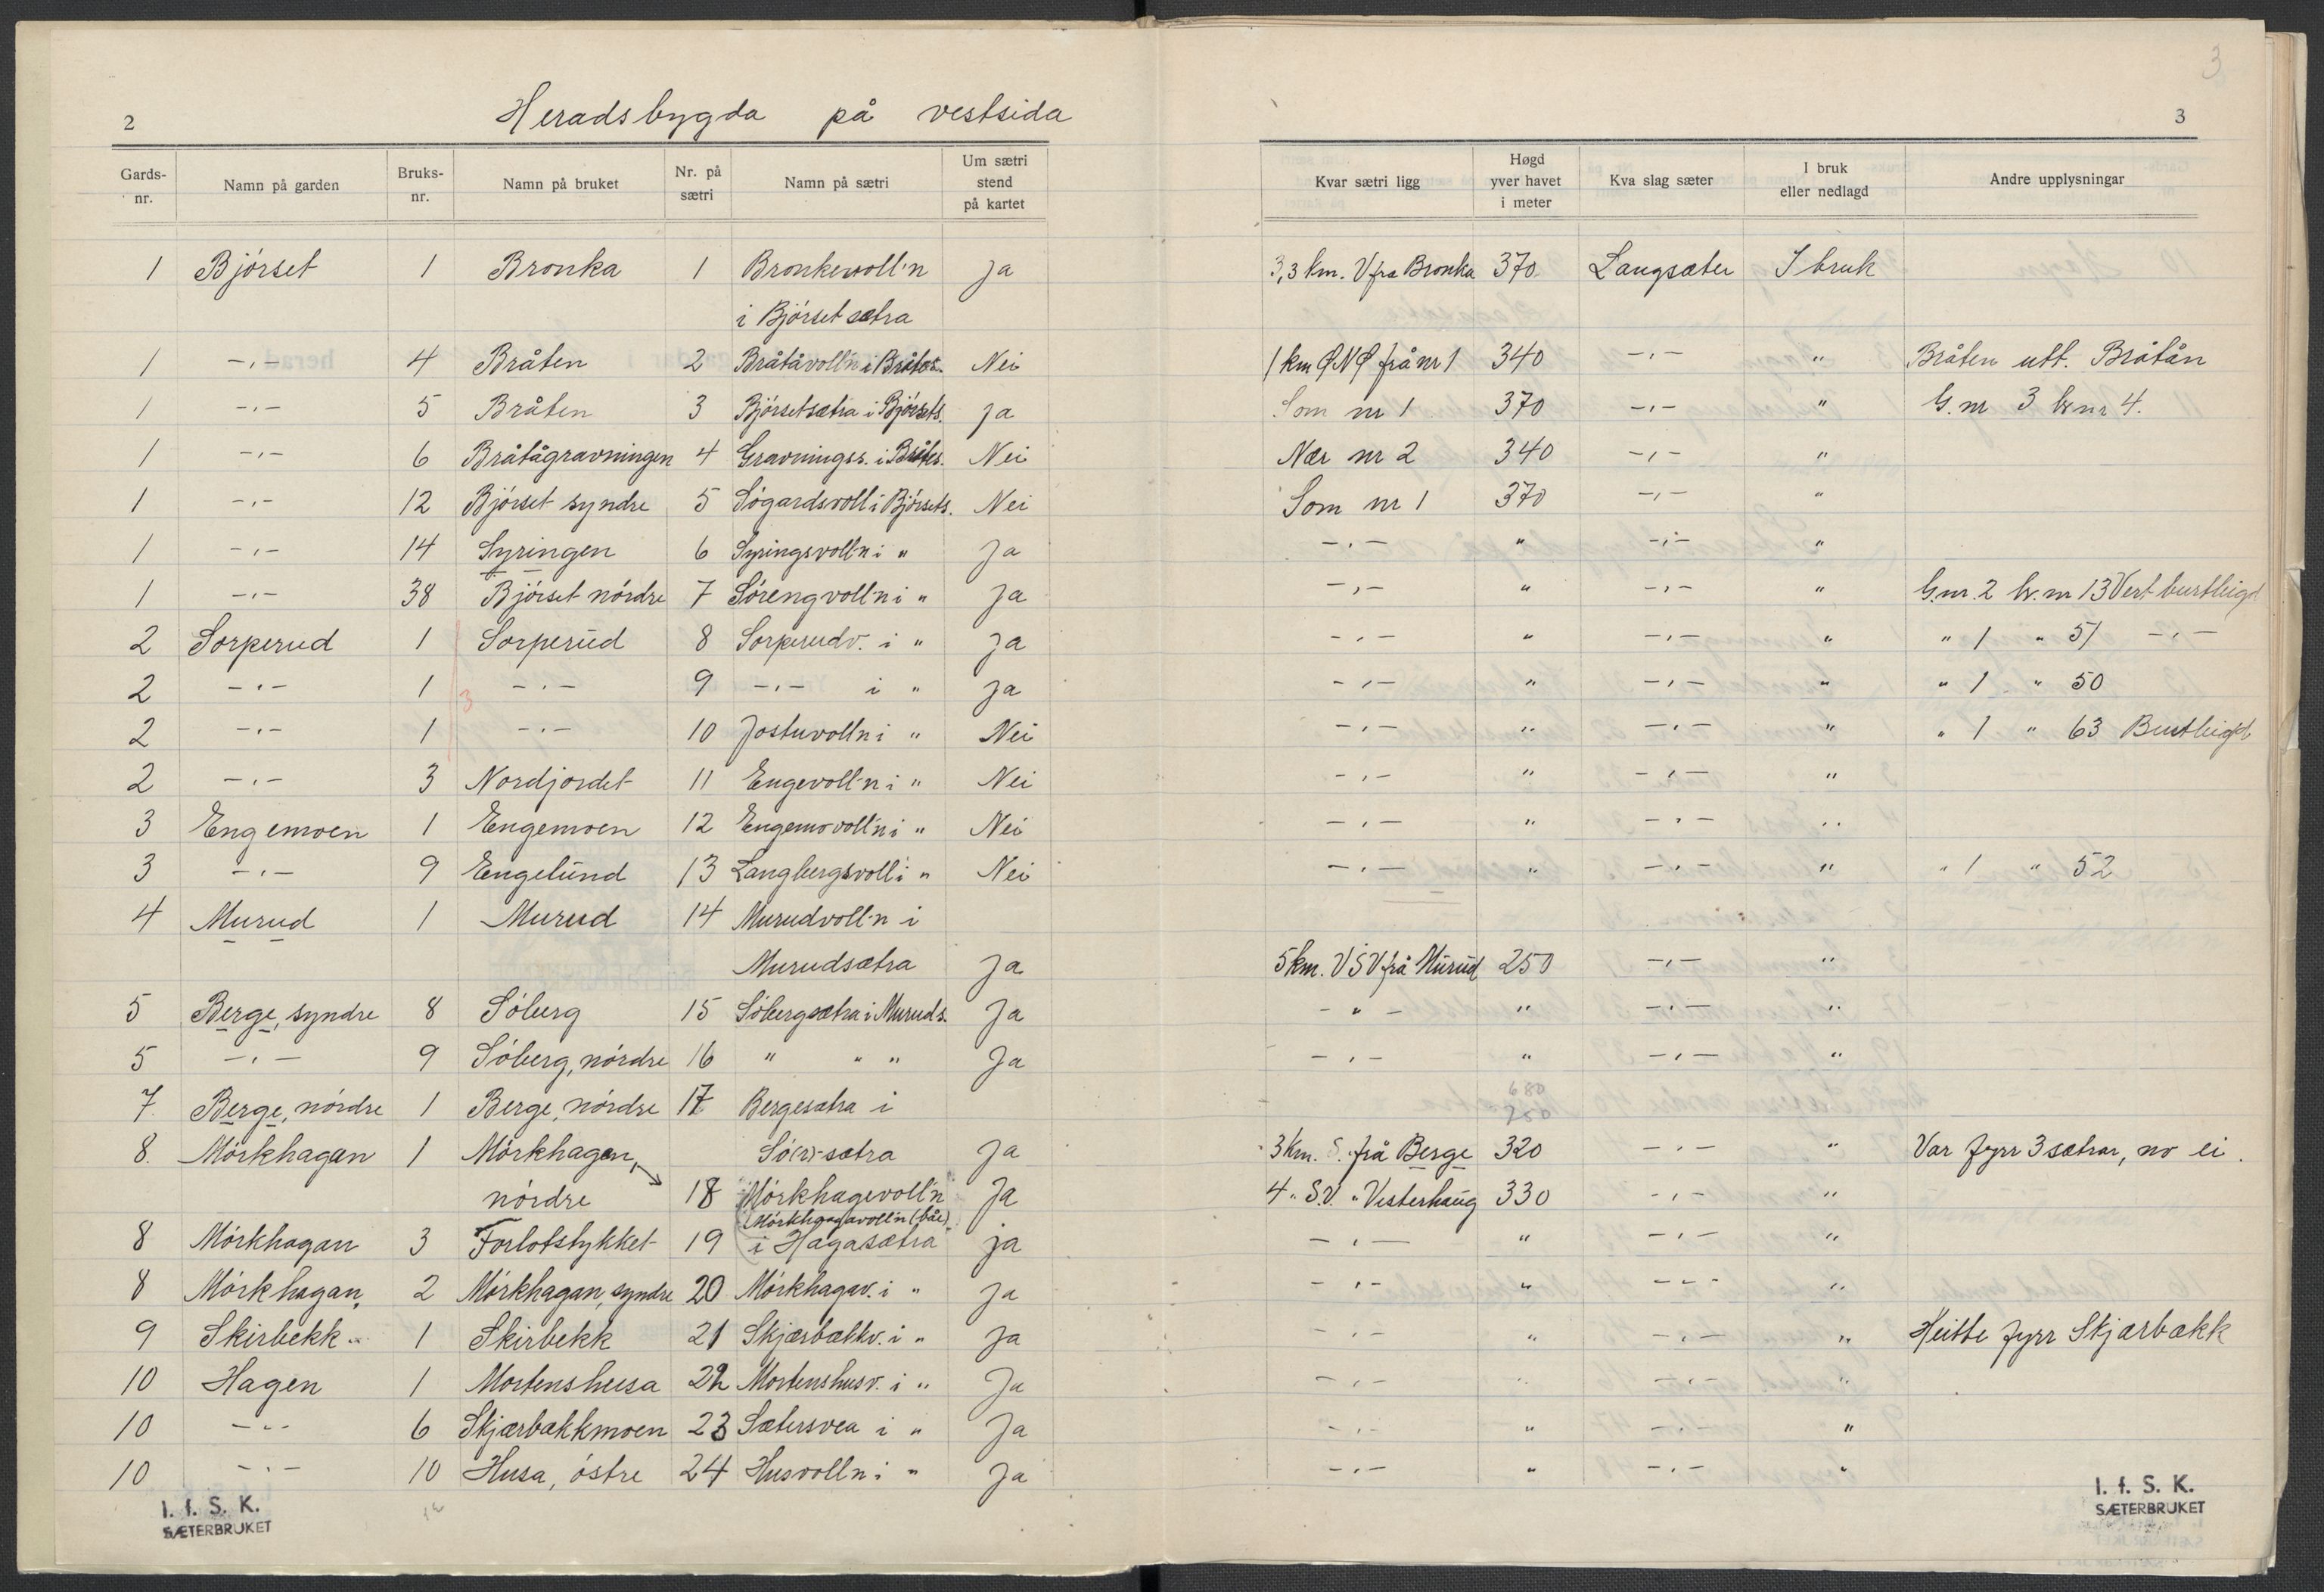 3
2 Heradsbygda på vestsida 3
Gards-nr. Namn på garden Bruks-nr. Namn på bruket Nr. på sætri Namn på sætri Um sætri stend på kartet Kvar sætri ligg Høgd yver havet i meter Kva slag sæter I bruk eller nedlagd Andre upplysningar
1 Bjórset 1 Bronka 1 Bronkevoll'n ja 3,3 km. V fra Bronka 370 Langsæter I bruk
i Bjórsetsætra
1 -,- 4 Bråten 2 Bråtåvoll'n i Bråtås. Nei 1 km ØNØ frå nr 1 340 -,- " Bråten utt. Bråtån
1 -,- 5 Bråten 3 Bjórsetsætra i Bjórsets. ja Som nr 1 370 -,- " G.nr 3 br nr 4.
1 -,- 6 Bråtågravningen 4 Gravningss. i Nei Nær nr 2 340 -,- "
1 -,- 12 Bjórset syndre 5 Ságardsvoll i Bjórsets. Nei Som nr 1 370 -,- "
1 -,- 14 Syringen 6 Syringsvoll'n i " Ja -,- " -,- "
1 -,- 38 Bjórset nórdre 7 Sórengvoll'n i " Ja -,- " -,- " G.nr. 2 br. nr 13 Vert burtleigd
2 Sorperud 1 Sorperud 8 Sorperudv. i " Ja -,- " -,- " " 1 " 51 -,-
2 -,- 1 3 -,- 9 -,- i " Ja -,- " -,- " " 1 " 50
2 -,- 1 -,- 10 Jostuvoll'n i " Nei -,- " -,- " " 1 " 63 Burtleigd
2 -,- 3 Nordjordet 11 Engevoll'n i " Nei -,- " -,- "
3 Engemoen 1 Engemoen 12 Engemovoll'n i " Nei -,- " -,- "
3 -,- 9 Engelund 13 Langbergsvoll i " Nei -,- " -,- " " 1 " 52
4 Murud 1 Murud 14 Murudvoll'n i
Murudsætra Ja 5 km. VSV frå Murud 250 -,- "
5 Berge, syndre 8 Sóberg 15 Sóbergsætra i Muruds. Ja - " - " -,- "
5 -,- 9 Sóberg, nórdre 16 " " " Ja -,- " -,- "
680
7 Berge, nórdre 1 Berge, nórdre 17 Bergesætra i 250
8. Mórkhagan 1 Mórkhagen, Só(r)-sætra Ja 3 km. S. frå Berge 320 -,- " Var fyrr 3 sætrar, no ei.
nórdre 18 Mórkhagevoll'n Ja 4 " S.V. " Vesterhaug 330 -,- "
Mórkhagavoll'n (båe)
8 Mórkhagan 3 Forlotstykket 19 i Hagasætra ja -,- " -,- "
8 Mórkhagan 2 Mórkhagan, syndre 20 Mórkhagav. i " Ja -,- " -,- "
9 Skirbekk 1 Skirbekk 21 Skjærbækkv. i " Ja -,- " -,- " Heitte fyrr Skjærbækk
10 Hagen 1 Mortenshusa 22 Mortenshusv. i " Ja -,- " -,- "
10 -,- 6 Skjærbækkmoen 23 Sætersvea i " Ja -,- " -,- "
10 -,- 10 Husa, óstre 24 Husvoll'n i " Ja -,- " -,- "
I. f. S. K.
SÆTERBRUKET
I. f. S. K.
SÆTERBRUKET